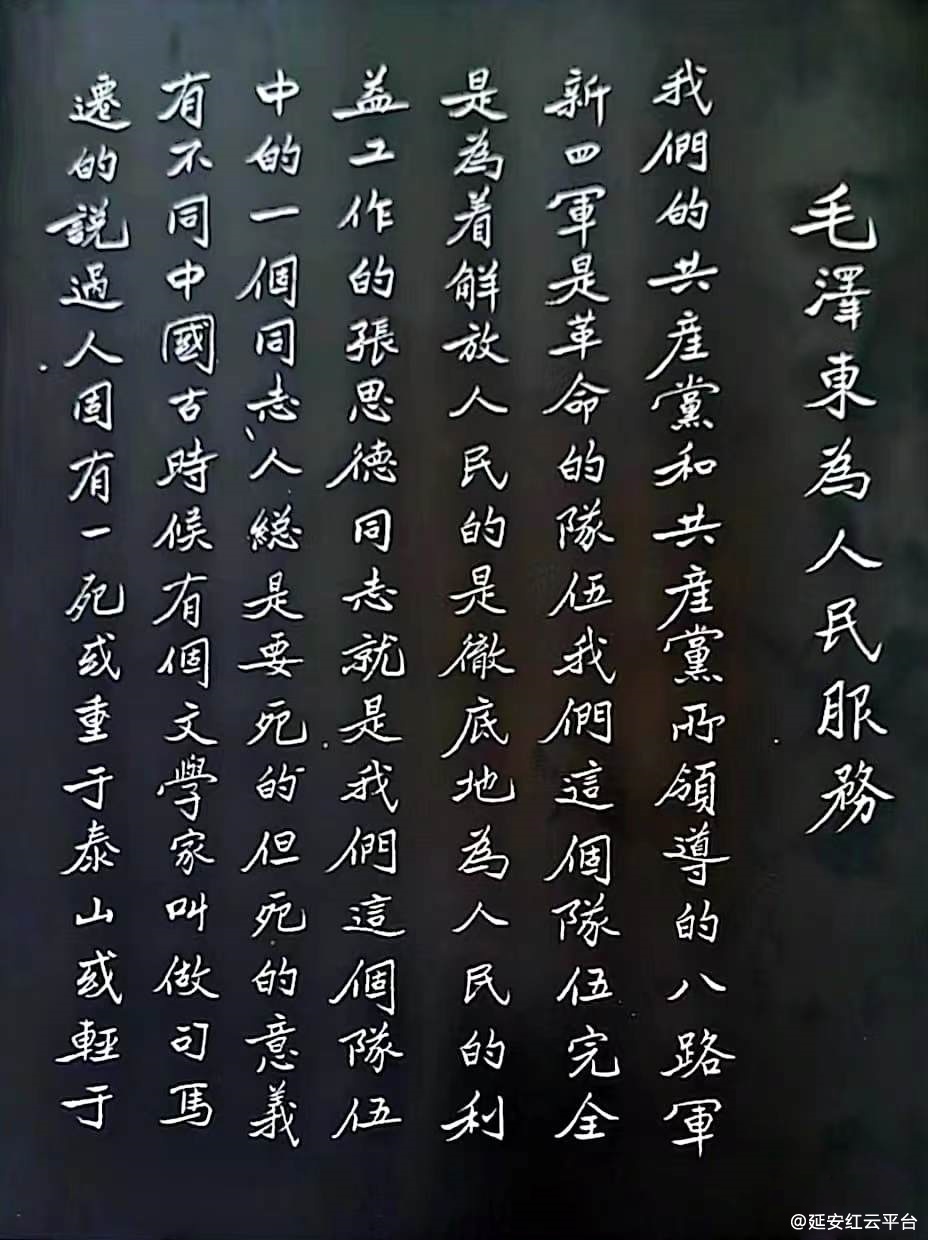 毛澤東為人民服務
我們的共產黨和共產黨所領導的八路軍
新四軍是革命的隊伍我們這個隊伍完全
是為着解放人民的是徹底地為人民的利
益工作的張思德同志就是我們這個隊伍
中的一個同志人總是要死的但死的意義
有不同中國古時候有個文學家叫做司馬
遷的說過人固有一死或重于泰山或輕于
@延安红云平台